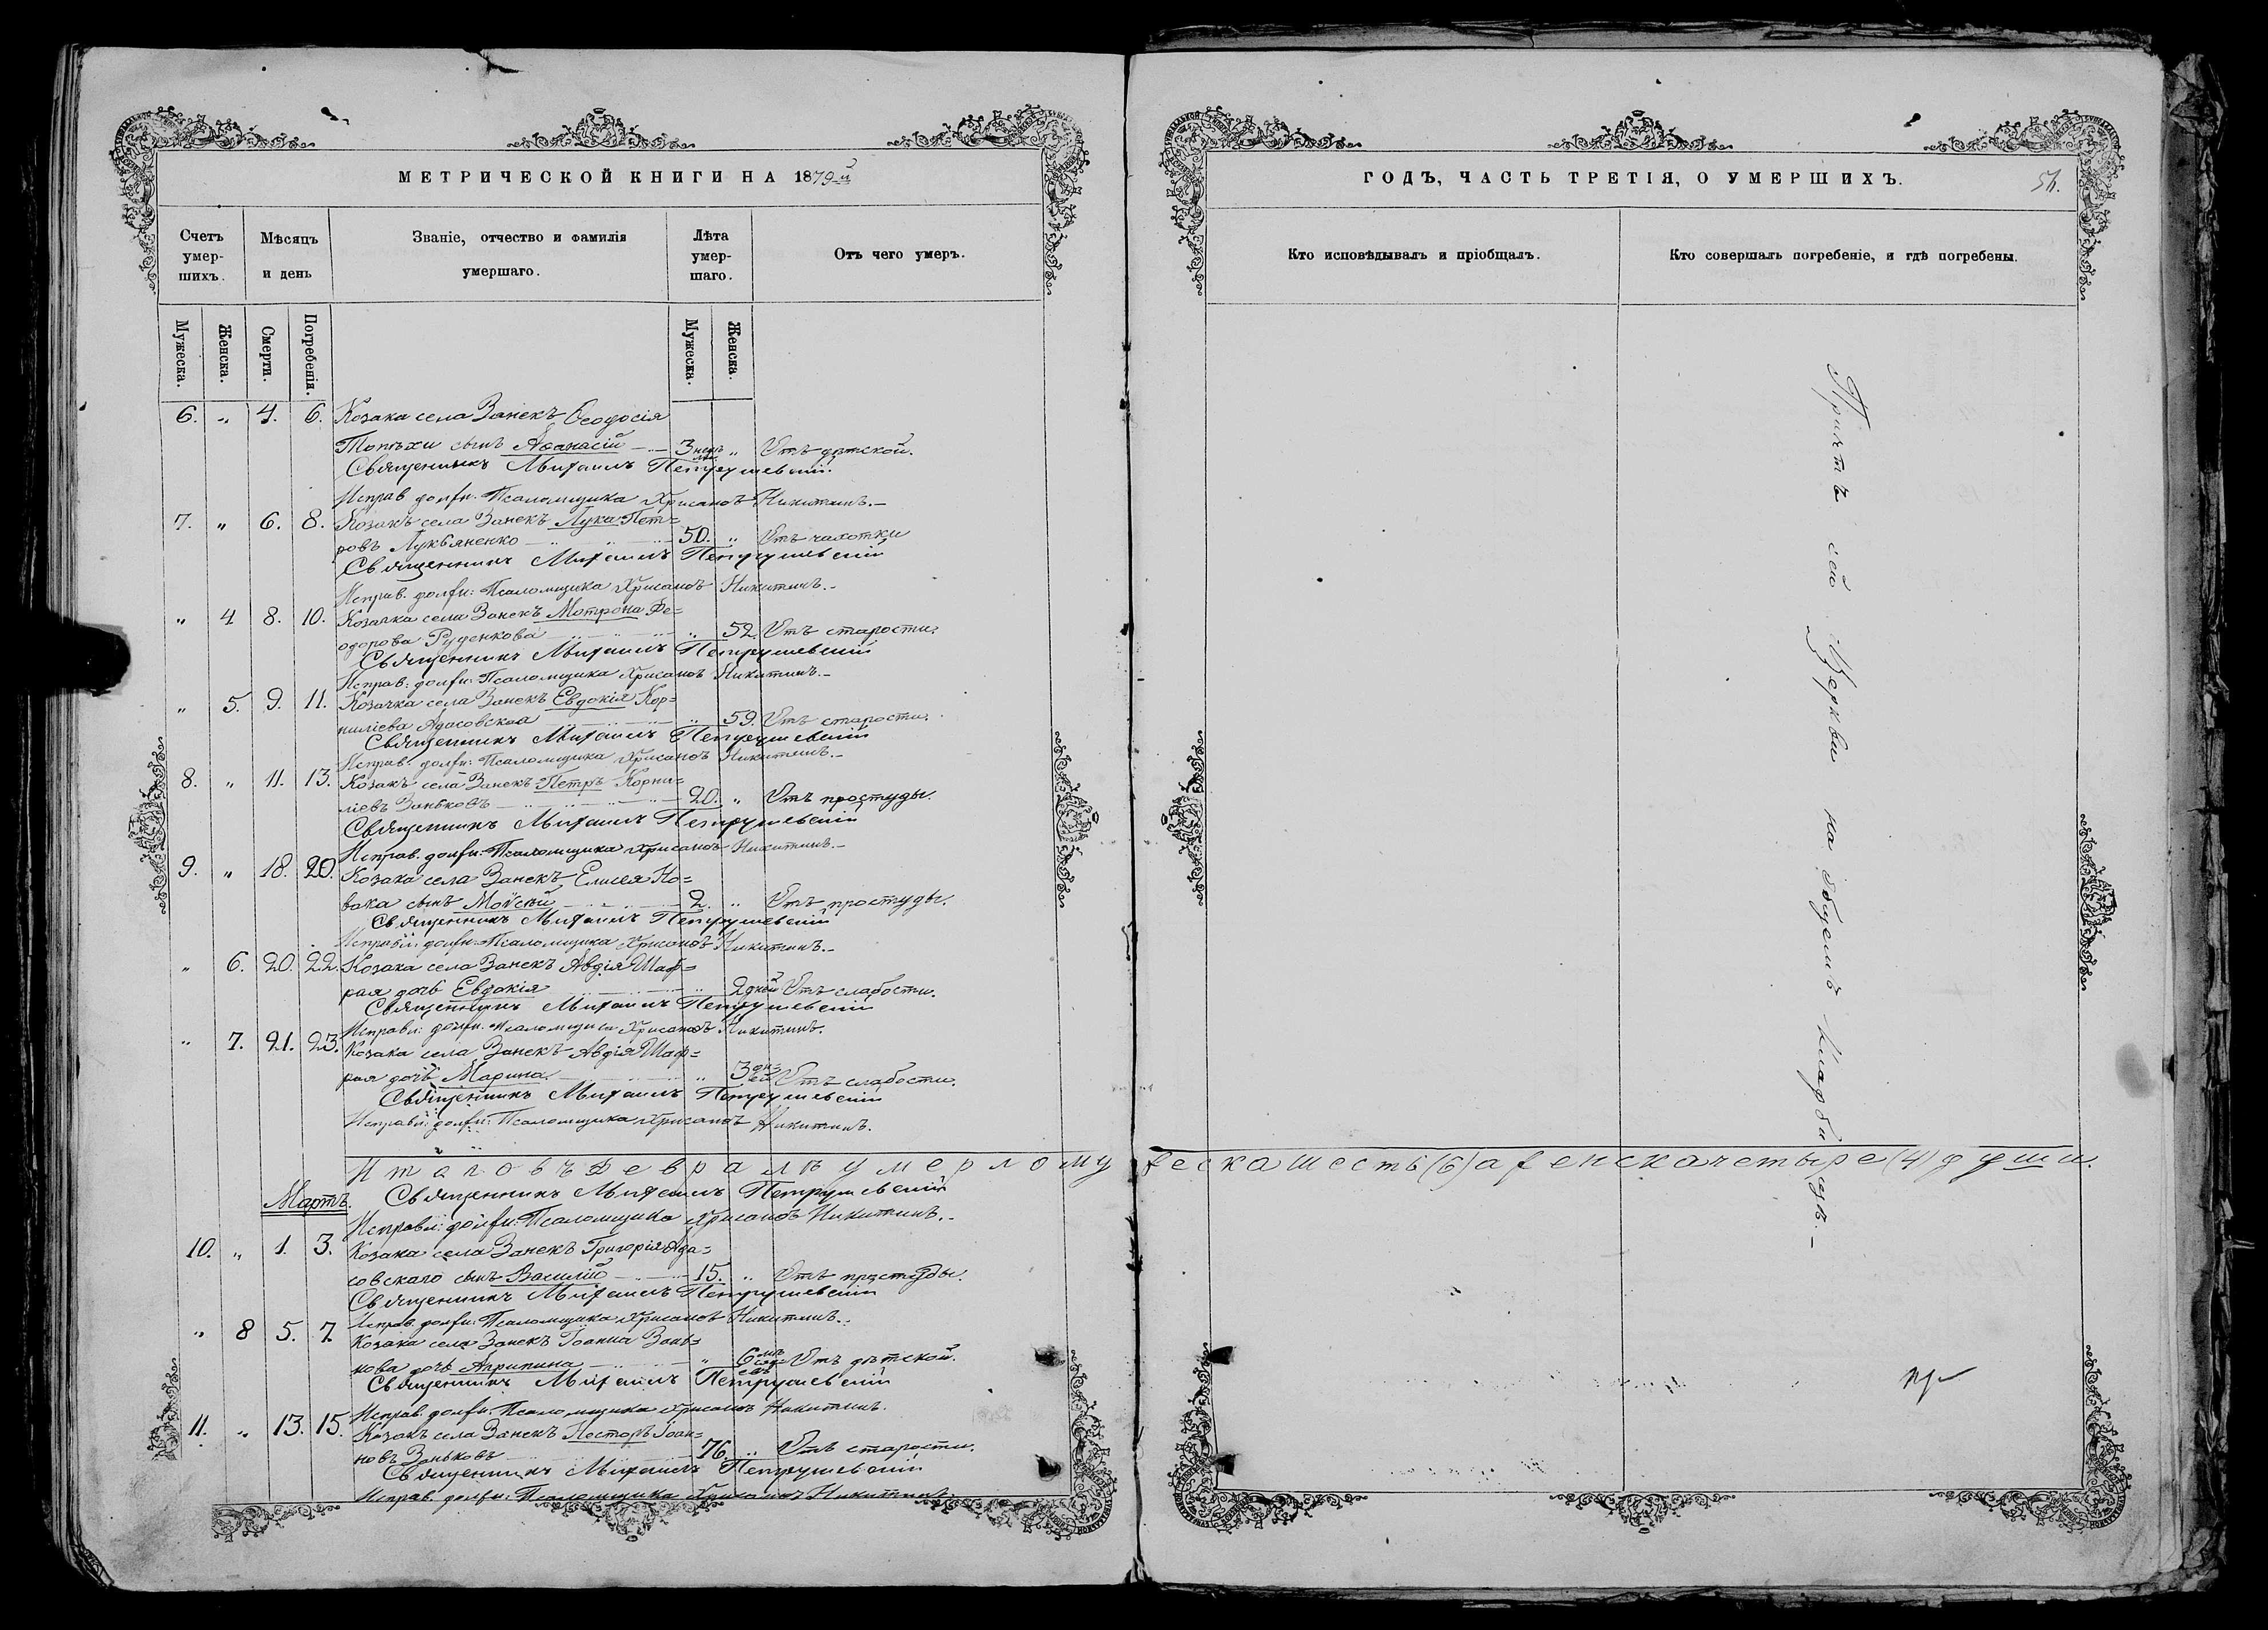 МЕТРИЧЕСКОЙ КНИГИ НА 1879й
Счетъ умер-шихъ.
Мѣсяцъ и день
Званіе, отчество и фамилія умершаго.
Лѣта умер-шаго.
Отъ чего умеръ.
Мужеска.
Женска.
Смерти.
Погребенія.
Мужеска.
Женска.
6. „ 4. 6. Козака села Занекъ Ѳеодосія
сынъ Аѳанасій 3 „ Отъ дѣтской.
Священникъ Михаилъ Петрушевскій
Исправ. долж: Псаломщика Хрисанѳъ Никитинъ.
7. „ 6. 8. Козакъ села Занекъ Лука Пет=
ровъ Лукьяненко 50. „ Отъ чахотки
Священникъ Михаилъ Петрушевскій
Исправ. долж: Псаломщика Хрисанѳъ Никитинъ.
„ 4 8. 10. Козачка села Занекъ Мотрона Ѳе=
одорова Руденкова „ 52. Отъ старости.
Священникъ Михаилъ Петрушевскій
Исправ: долж: Псаломщика Хрисанѳъ Никитинъ.
„ 5. 9. 11. Козачка села Занекъ Евдокія Кор=
нилієва Адасовская „ 59. Отъ старости.
Священникъ Михаилъ Петрушевскій
Исправ. долж: Псаломщика Хрисанѳъ Никитинъ.
8. „ 11. 13. Козакъ села Занекъ Петръ Корни=
ліевъ Заньковъ 20. „ Отъ простуды.
Священникъ Михаилъ Петрушевскій
Исправ. долж: Псаломщика Хрисанѳъ Никитинъ.
9. „ 18. 20. Козака села Занекъ Елисея Но=
вака сынъ Мойсей 2. „ Отъ простуды.
Священникъ Михаилъ Петрушевскій
Исправл: долж: Псаломщика Хрисанѳъ Никитинъ.
„ 6. 20. 22. Козака села Занекъ Авдія Шаф=
рая дочь Евдокія „ 2 дней Отъ слабости.
Священникъ Михаилъ Петрушевскій
Исправл: долж: Псаломщика Хрисанѳъ Никитинъ.
„ 7. 21. 23. Козака села Занекъ Авдія Шаф=
рая дочь Марина „ 3 дней Отъ слабости.
Священникъ Михаилъ Петрушевскій
Исправл: долж: Псаломщика Хрисанѳъ Никитинъ.
Итаго въ Февралѣ умерло му
Священникъ Михаилъ Петрушевскій
Мартъ.
Исправл: долж: Псаломщика Хрисанѳъ Никитинъ.
10. „ 1. 3. Козака села Занекъ Григорія Ада=
совскаго сынъ Василій 15. „ Отъ простуды.
Священникъ Михаилъ Петрушевскій
Исправ. долж: Псаломщика Хрисанѳъ Никитинъ.
„ 8 5. 7. Козака села Занекъ Іоанна Зань=
кова дочь Агрипина „ 6 Отъ дѣтской.
Священникъ Михаилъ Петрушевскій
Исправ. долж: Псаломщика Хрисанѳъ Никитинъ.
11. „ 13. 15. Козакъ села Занекъ Несторъ Іоан=
новъ Заньковъ 76. „ Отъ старости.
Священникъ Михаилъ Петрушевскій
Исправ. долж: Псаломщика Хрисанѳъ Никитинъ.
ГОДЪ, ЧАСТЬ ТРЕТІЯ, О УМЕРШИХЪ.
Кто исповѣдывалъ и пріобщалъ.
Кто совершалъ погребеніе, и гдѣ погребены.
Причтъ сей Церкви на общемъ кладби щѣ.
жеска шесть (6) а женска четыре (4) души.